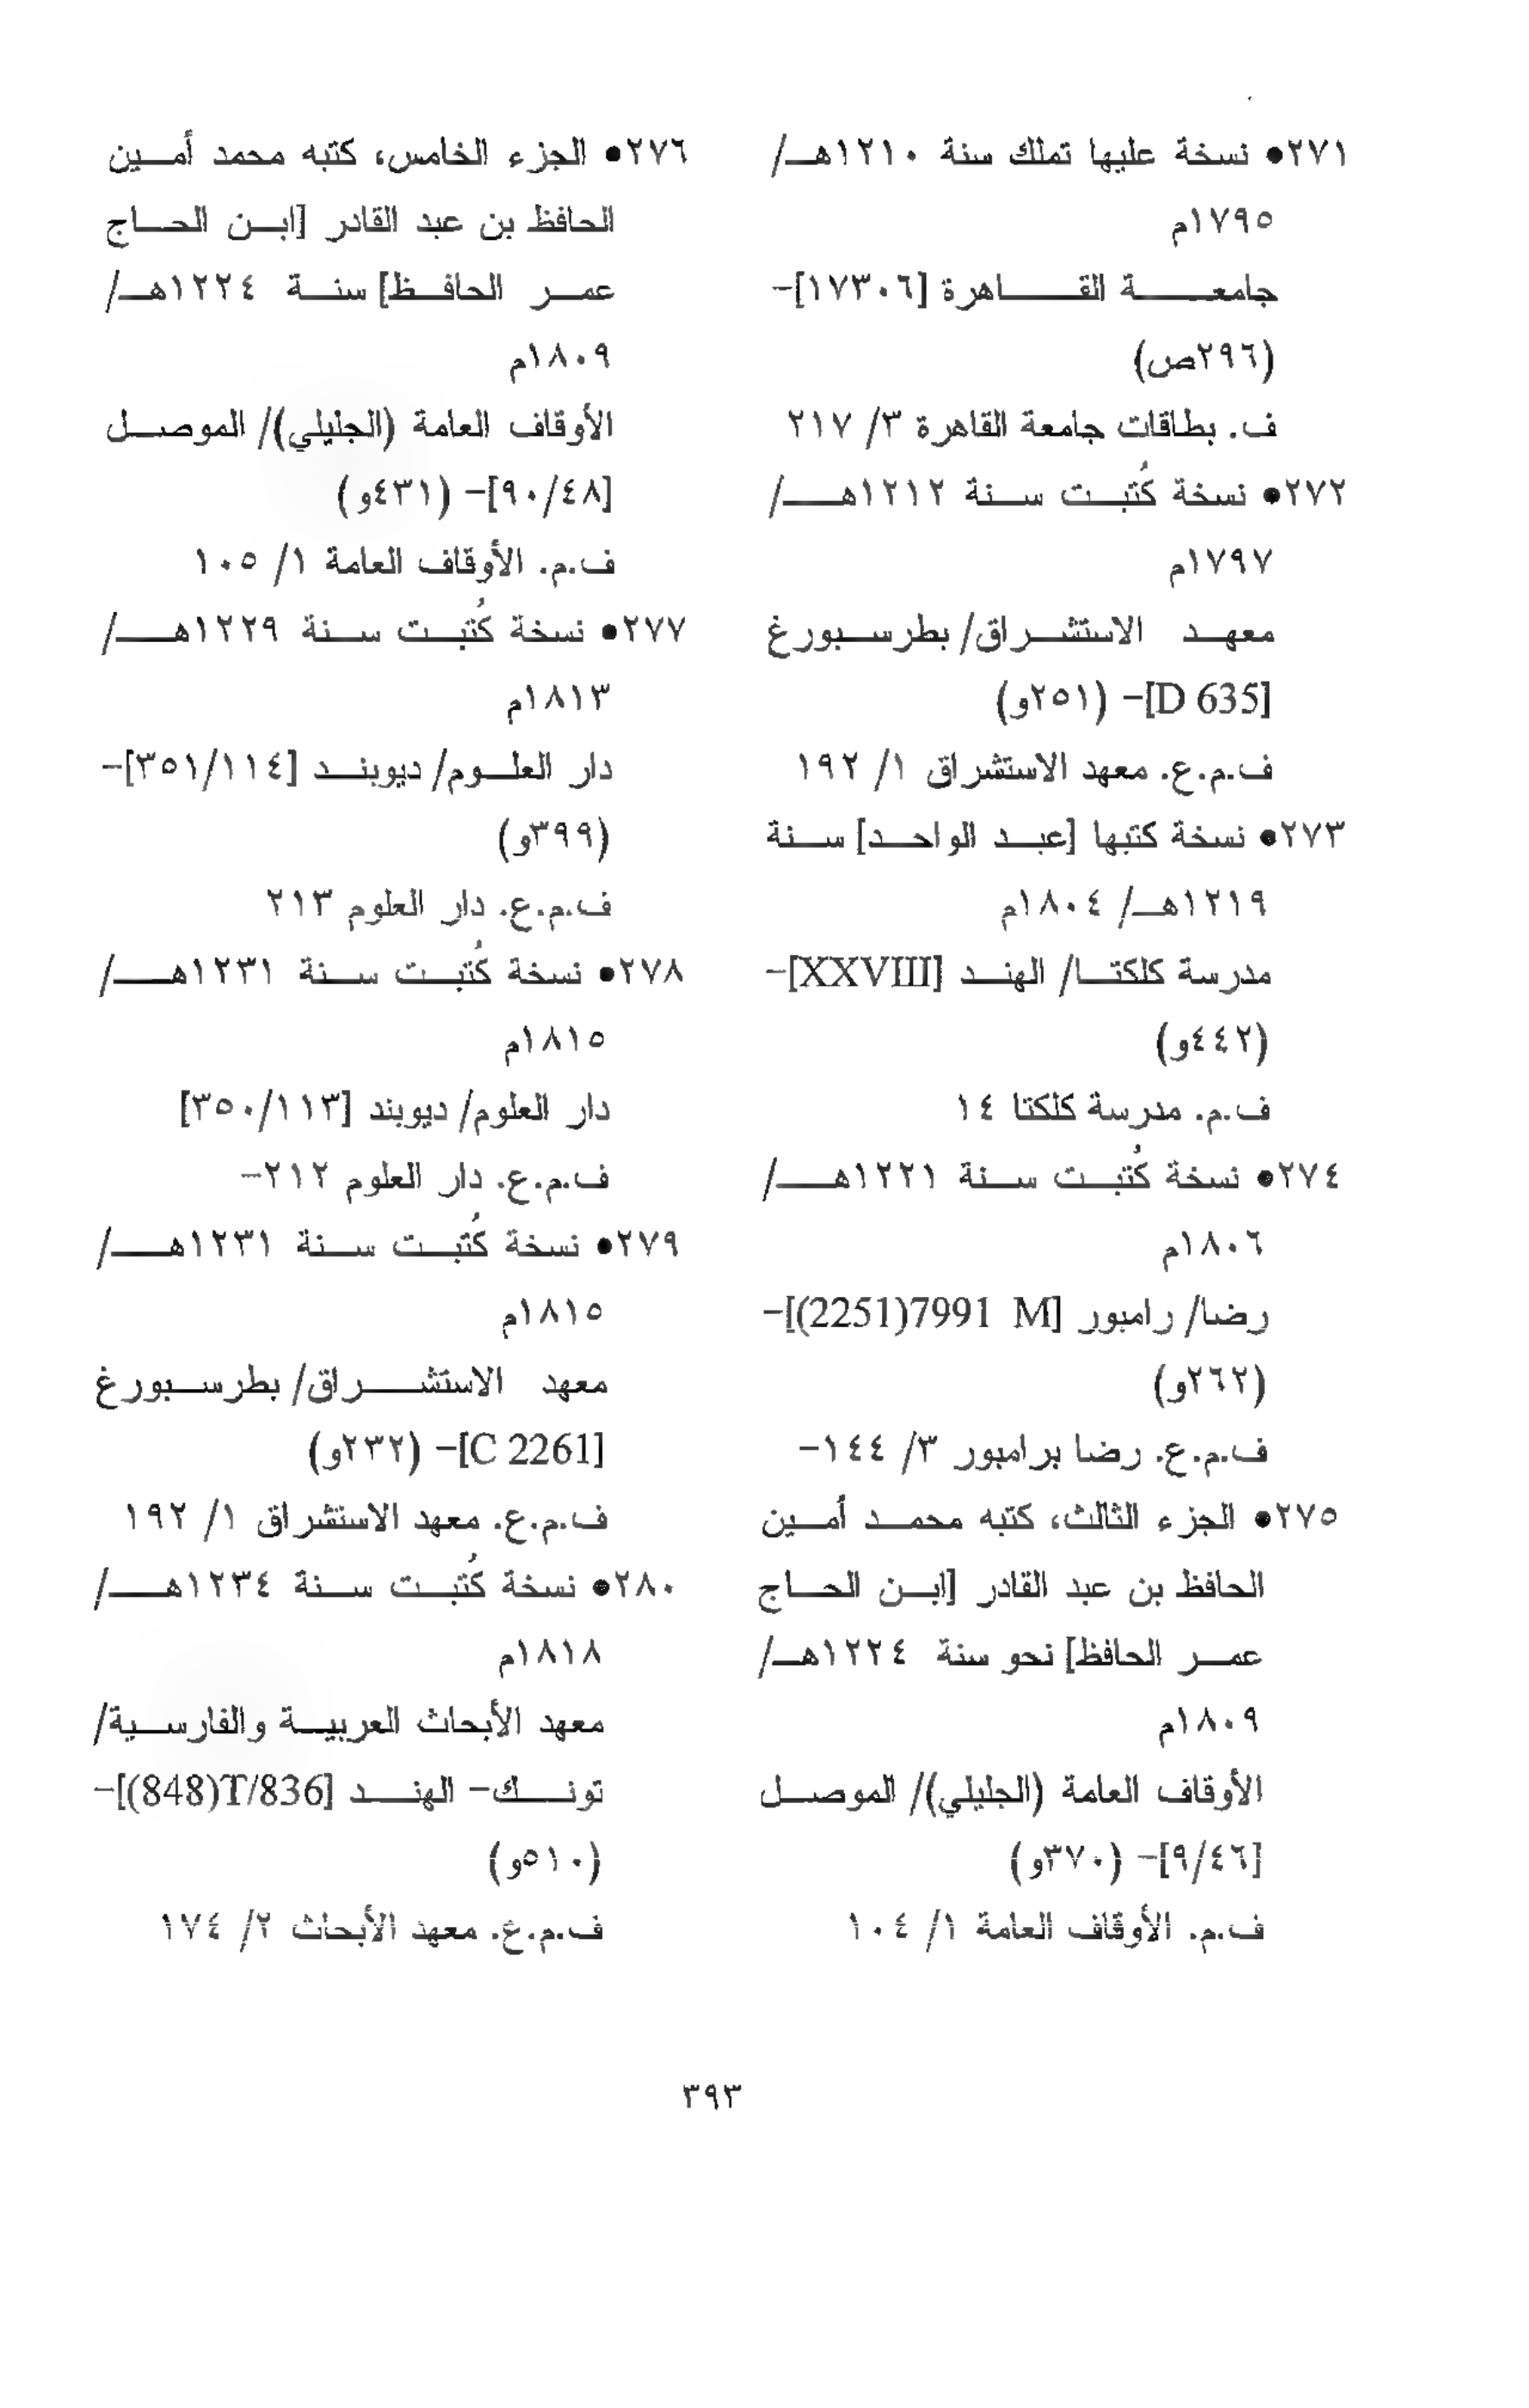 ٢٧١● نسخة عليها تملك سنة ١٢١٠هـ/
١٧٩٥م
جامعة القاهرة [١٧٣٠٦]-
(٢٩٦ص)
ف. بطاقات جامعة القاهرة ٣/ ٢١٧
٢٧٢● نسخة كُتبت سنة ١٢١٢هـ/
١٧٩٧م
معهد الاستشراق/ بطرسبورغ
[D 635]- (٢٥١و)
ف.م.ع. معهد الاستشراق ١/ ١٩٢
٢٧٣● نسخة كتبها [عبد الواحد] سنة
١٢١٩هـ/ ١٨٠٤م
مدرسة كلكتا/ الهند [XXVIII]-
(٤٤٢و)
ف.م. مدرسة كلكتا ١٤
٢٧٤● نسخة كُتبت سنة ١٢٢١هـ/
١٨٠٦م
رضا/ رامبور [M 7991(2251)]-
(٢٦٢و)
ف.م.ع. رضا برامبور ٣/ ١٤٤-
٢٧٥● الجزء الثالث، كتبه محمد أمين
الحافظ بن عبد القادر [ابن الحاج
عمر الحافظ] نحو سنة ١٢٢٤هـ/
١٨٠٩م
الأوقاف العامة (الجليلي)/ الموصل
[٩/٤٦]- (٣٧٠و)
ف.م. الأوقاف العامة ١/ ١٠٤
٢٧٦● الجزء الخامس، كتبه محمد أمين
الحافظ بن عبد القادر [ابن الحاج
عمر الحافظ] سنة ١٢٢٤هـ/
١٨٠٩م
الأوقاف العامة (الجليلي)/ الموصل
[٩٠/٤٨]- (٤٣١و)
ف.م. الأوقاف العامة ١/ ١٠٥
٢٧٧● نسخة كُتبت سنة ١٢٢٩هـ/
١٨١٣م
دار العلوم/ ديوبند [٣٥١/١١٤]-
(٣٩٩و)
ف.م.ع. دار العلوم ٢١٣
٢٧٨● نسخة كُتبت سنة ١٢٣١هـ/
١٨١٥م
دار العلوم/ ديوبند [٣٥٠/١١٣]
ف.م.ع. دار العلوم ٢١٢-
٢٧٩● نسخة كُتبت سنة ١٢٣١هـ/
١٨١٥م
معهد الاستشراق/ بطرسبورغ
[C 2261]- (٢٣٢و)
ف.م.ع. معهد الاستشراق ١/ ١٩٢
٢٨٠● نسخة كُتبت سنة ١٢٣٤هـ/
١٨١٨م
معهد الأبحاث العربية والفارسية/
تونك- الهند [T/836(848)]-
(٥١٠و)
ف.م.ع. معهد الأبحاث ٢/ ١٧٤
٣٩٣